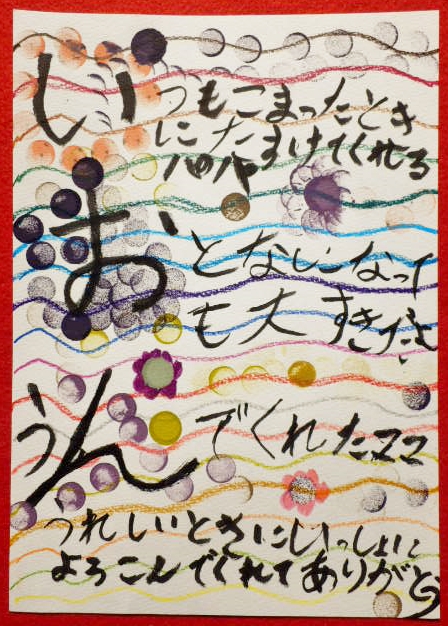 いつもこまったとき
にたすけてくれる
パパ
おとなになって
も大すきだよ
うんでくれたママ
うれしいときにいっしょに
よろこんでくれてありがとう